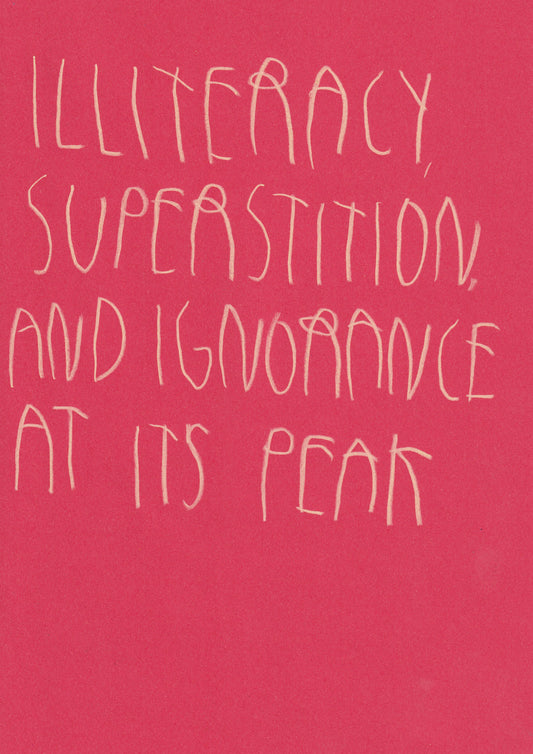 ILLITERACY,
SUPERSTITION,
AND IGNORANCE
AT ITS PEAK